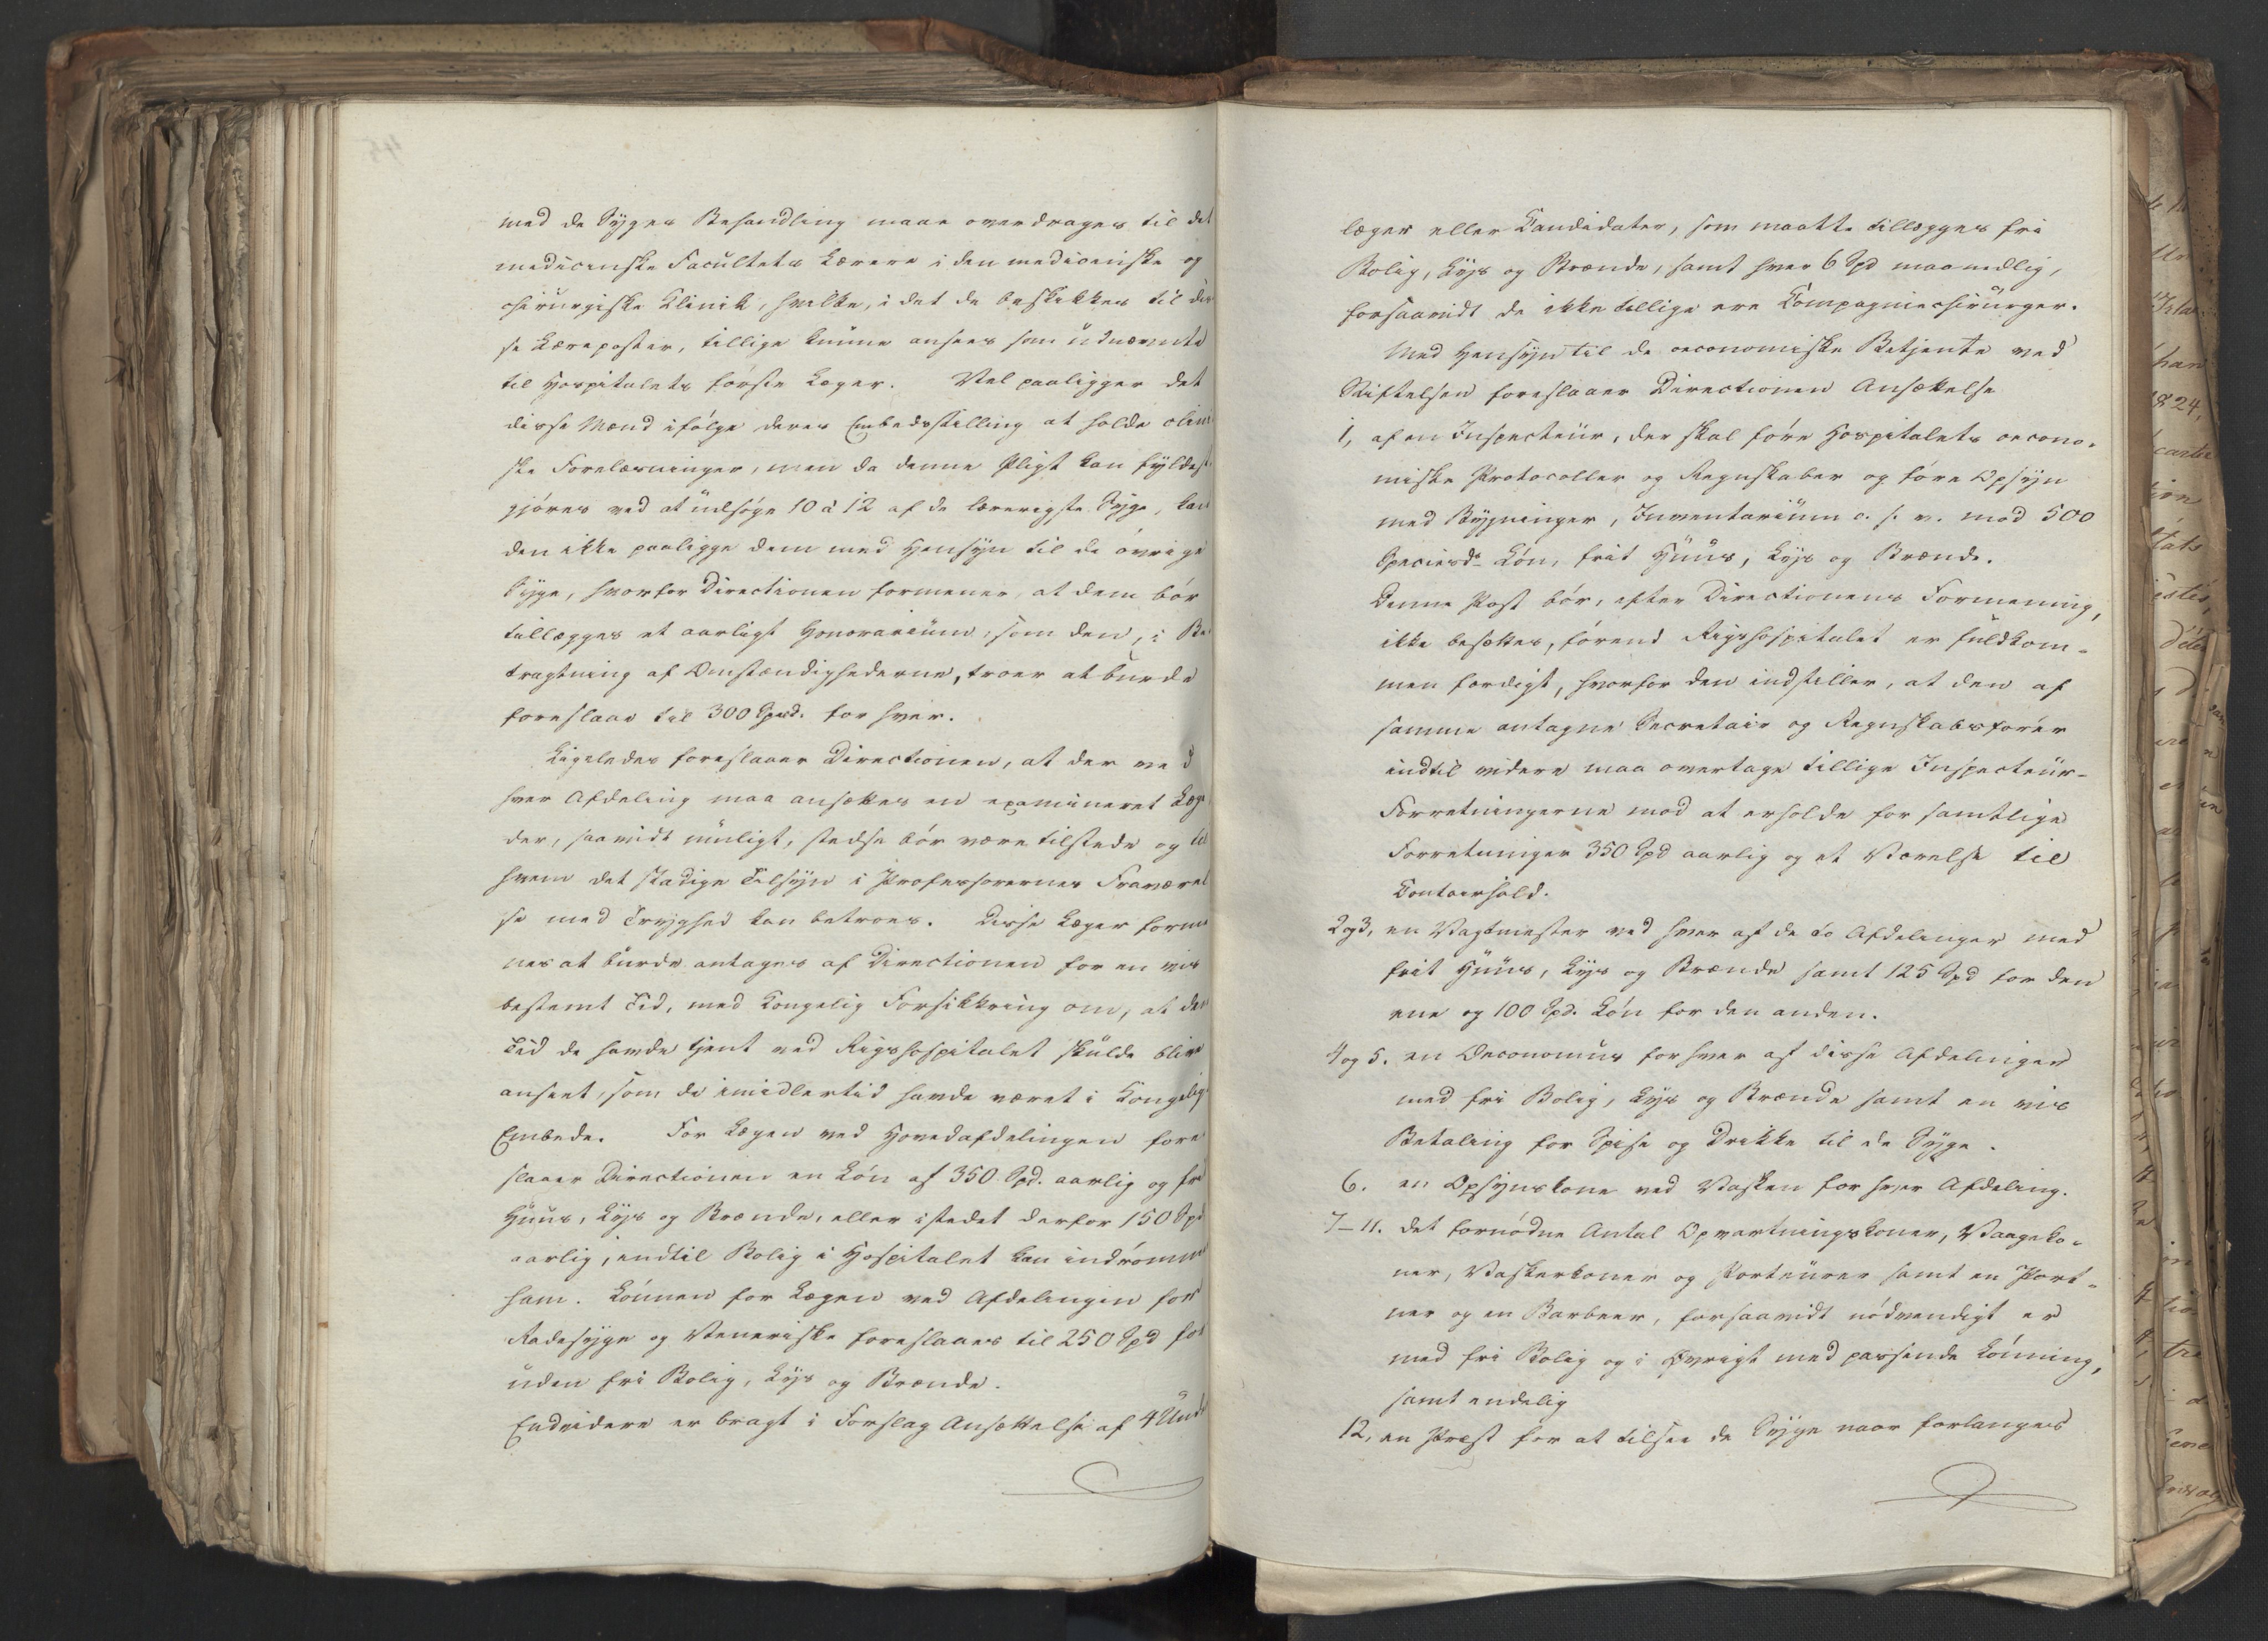 med de Syges Behandling maae overdrages til det
medicinske Facultets Lærere i den medicinske og
chirurgiske Klinik, hvilke, i det de beskikkes til dis
se Læreposter, tillige kunne ansees som udnævnte
til Hospitalets første Læger. Vel paaligger det
disse Mænd ifølge deres Embedsstilling at holde clini
ske Forelæsninger, men da denne Pligt kan fyldest
gjøres ved at udsøge 10 à 12 af de lærerigste Syge, kan
den ikke paaligge dem med Hensyn til de øvrige
Syge, hvorfor Directionen formener, at dem bør
tillægges et aarligt Honorarium, som den, i Be
tragtning af Omstændighederne, troer at burde
foreslaae til 300 Spd. for hver.
Ligeledes foreslaaer Directionen, at der ved
hver Afdeling maa ansættes en examineret Læge
der, saavidt muligt, stedse bør være tilstede og til
hvem det stadige Tilsyn i Professorernes Fraværel
se med Tryghed kan betroes. Disse Læger forme
nes at burde antages af Directionen for en vis
bestemt Tid, med Kongelig Forsikkring om, at den
Tid de havde tjent ved Rigshospitalet skulde blive
anseet, som de imidlertid havde været i Kongelig
Embede. For Lægen ved Hovedafdelingen fore
slaaer Directionen en Løn af 350 Spd. aarlig og frit
Huus, Lys og Brænde, eller istedet derfor 150 Spd
aarlig, indtil Bolig i Hospitalet kan indrømmes
ham. Lønnen for Lægen ved Afdelingen for
Radesyge og Veneriske foreslaaes til 250 Spd for
uden fri Bolig, Lys og Brænde.
Endvidere er bragt i Forslag Ansættelse af 4 Under
læger eller Candidater, som maatte tillægges fri
Bolig, Lys og Brænde, samt hver 6 Spd maanedlig,
forsaavidt de ikke tillige ere Compagniechirurger.
Med Hensyn til de oeconomiske Betjente ved
Stiftelsen foreslaaer Directionen Ansættelse
1, af en Inspecteur, der skal føre Hospitalets oecono-
miske Protocoller og Regnskaber og føre Opsyn
med Bygninger, Inventarium o. s. v. mod 500
Speciesd. Løn, frit Huus, Lys og Brænde.
Denne Post bør, efter Directionens Formening,
ikke besættes, førend Rigshospitalet er fuldkom-
men færdigt, hvorfor den indstiller, at den af
samme antagne Secretair og Regnskabsfører
indtil videre maa overtage tillige Inspecteur-
Forretningerne mod at erholde for samtlige
Forretninger 350 Spd aarlig og et Værelse til
Contoirhold.
2 og 3, en Vagtmester ved hver af de to Afdelinger med
frit Huus, Lys og Brænde samt 125 Spd for den
ene og 100 Spd. Løn for den anden.
4 og 5. en Oeconomus for hver af disse Afdelinger
med fri Bolig, Lys og Brænde samt en vis
Betaling for Spise og Drikke til de Syge.
6. en Opsynskone ved Vasken for hver Afdeling.
7–11. det fornødne Antal Opvartningskoner, Vaageko-
ner, Vaskerkoner og Porteurer samt en Port-
ner og en Barbeer, forsaavidt nødvendigt er
med fri Bolig og i Øvrigt med passende Lønning,
samt endelig
12, en Præst for at tilsee de Syge naar forlanges